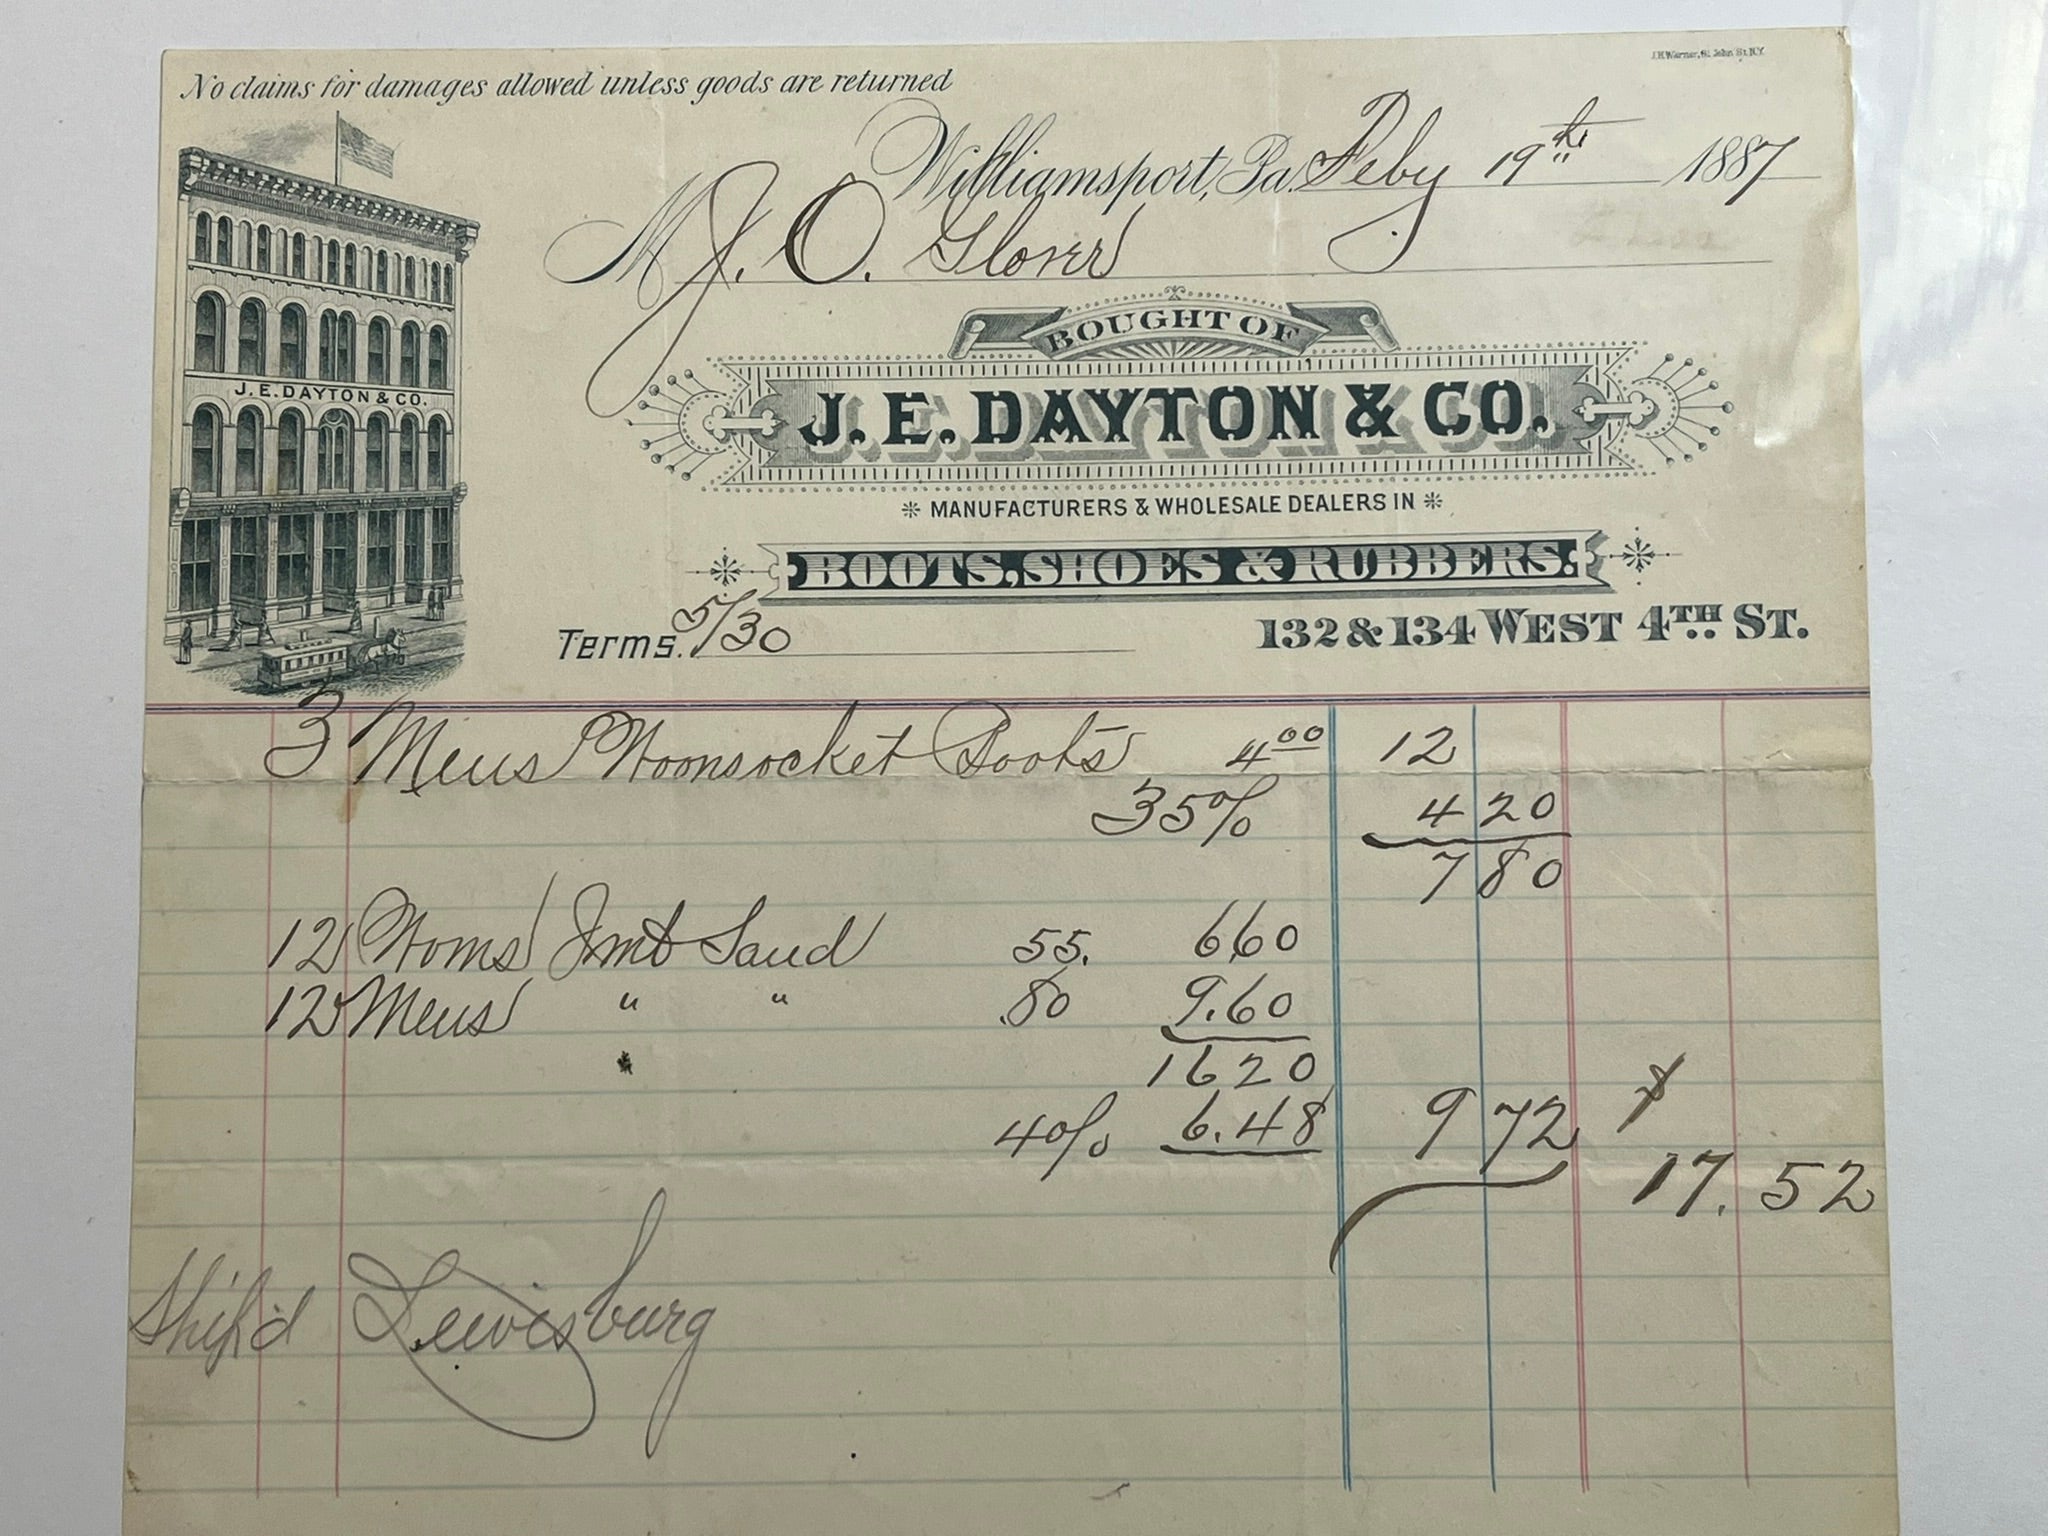 J.H. Warner, 81 John St. N.Y.
No claims for damages allowed unless goods are returned
Williamsport, Pa. Feby 19th 1887
M J. O. Glover
BOUGHT OF
J. E. DAYTON & CO.
J. E. DAYTON & CO.
MANUFACTURERS & WHOLESALE DEALERS IN
BOOTS, SHOES & RUBBERS.
Terms. 5/30
132 & 134 WEST 4TH ST.
3 Mens Woonsocket Boots 4.00 12
35% 4 20
7 80
12 Woms Imt Sand 55. 6 60
12 Mens " " .80 9.60
16 20
40% 6.48 9 72 $
17.52
Ship'd Lewisburg